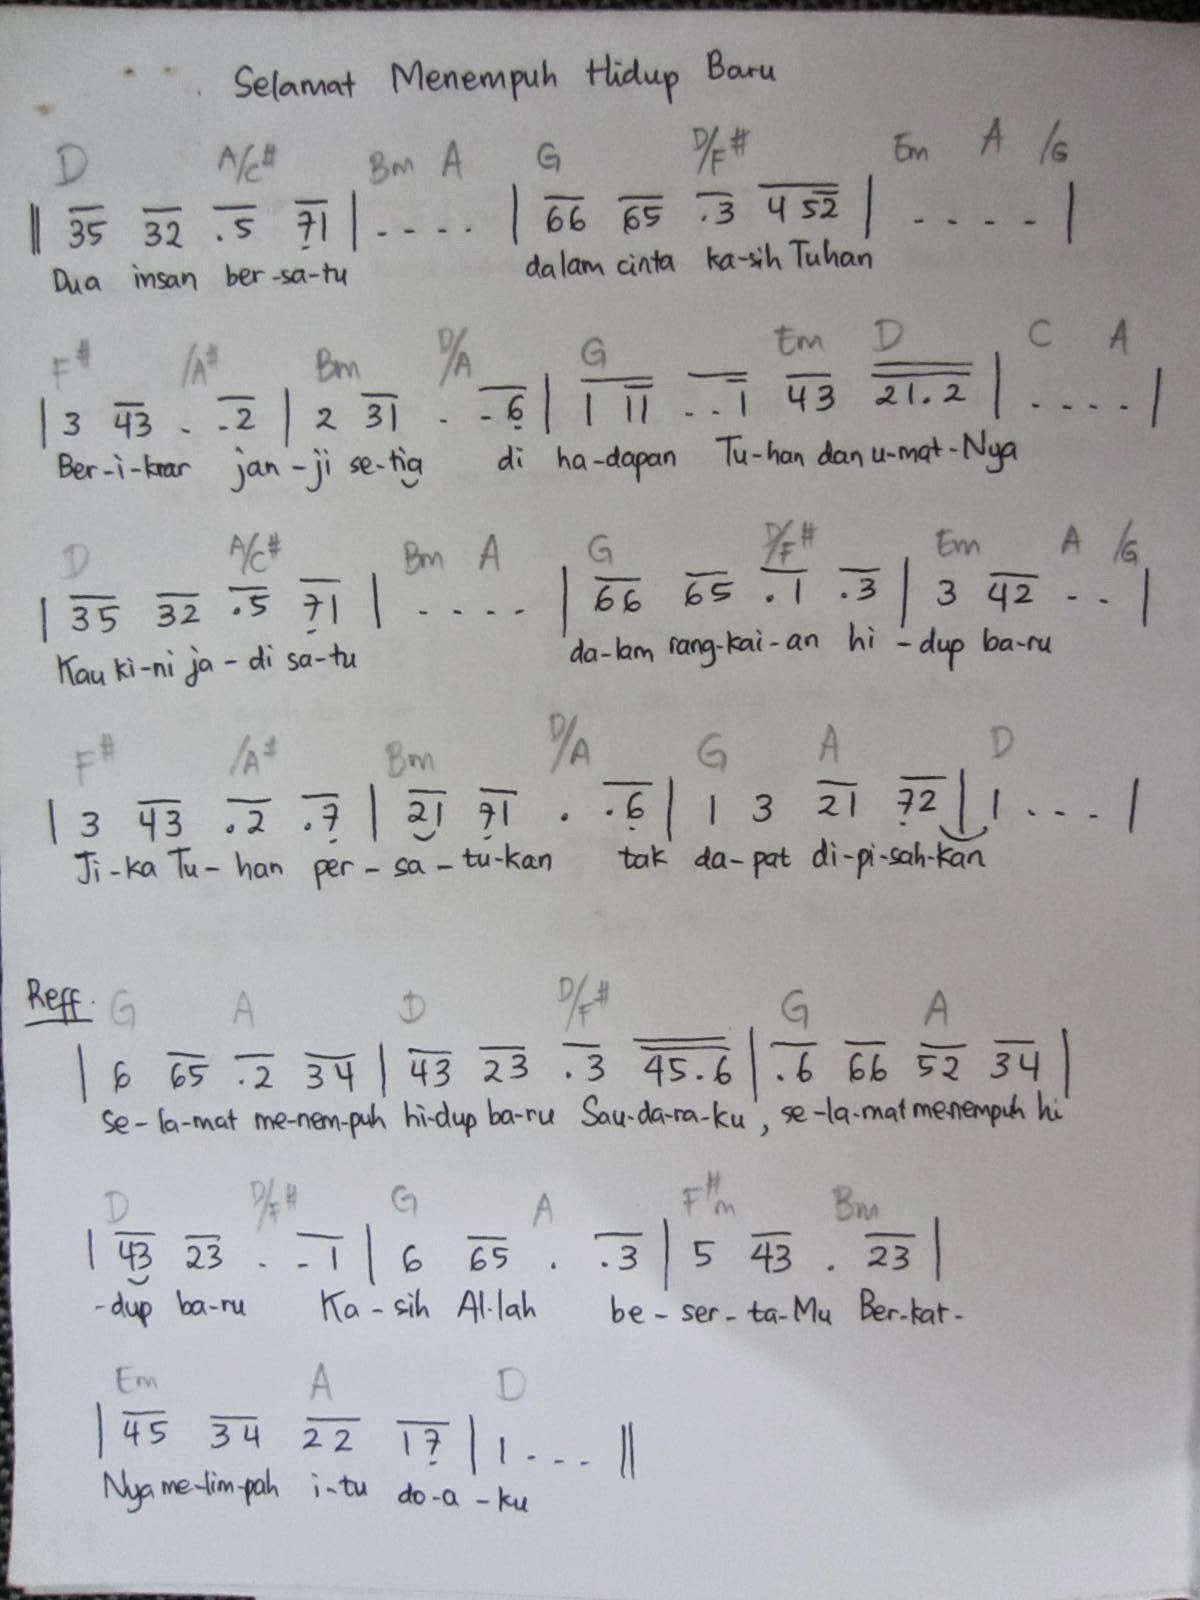 Selamat Menempuh Hidup Baru
D A/C# Bm A G D/F# Em A /G
|| 35 32 .5 71 | . . . . | 66 65 .3 4 52 | . . . . |
Dua insan ber-sa-tu dalam cinta ka-sih Tuhan
F# /A# Bm D/A G Em D C A
| 3 43 . .2 | 2 31 . .6 | 1 11 . .1 43 21.2 | . . . . |
Ber-i-krar jan-ji se-tia di ha-dapan Tu-han dan u-mat-Nya
D A/C# Bm A G D/F# Em A /G
| 35 32 .5 71 | . . . . | 66 65 .1 .3 | 3 42 . . |
Kau ki-ni ja-di sa-tu da-lam rang-kai-an hi-dup ba-ru
F# /A# Bm D/A G A D
| 3 43 .2 .7 | 21 71 . .6 | 1 3 21 72 | 1 . . . |
Ji-ka Tu-han per-sa-tu-kan tak da-pat di-pi-sah-kan
Reff. G A D D/F# G A
| 6 65 .2 34 | 43 23 .3 45.6 | .6 66 52 34 |
se-la-mat me-nem-puh hi-dup ba-ru Sau-da-ra-ku, se-la-mat menempuh hi
D D/F# G A F#m Bm
| 43 23 . .1 | 6 65 . .3 | 5 43 . 23 |
-dup ba-ru Ka-sih Al-lah be-ser-ta-Mu Ber-kat-
Em A D
| 45 34 22 17 | 1 . . . ||
Nya me-lim-pah i-tu do-a-ku